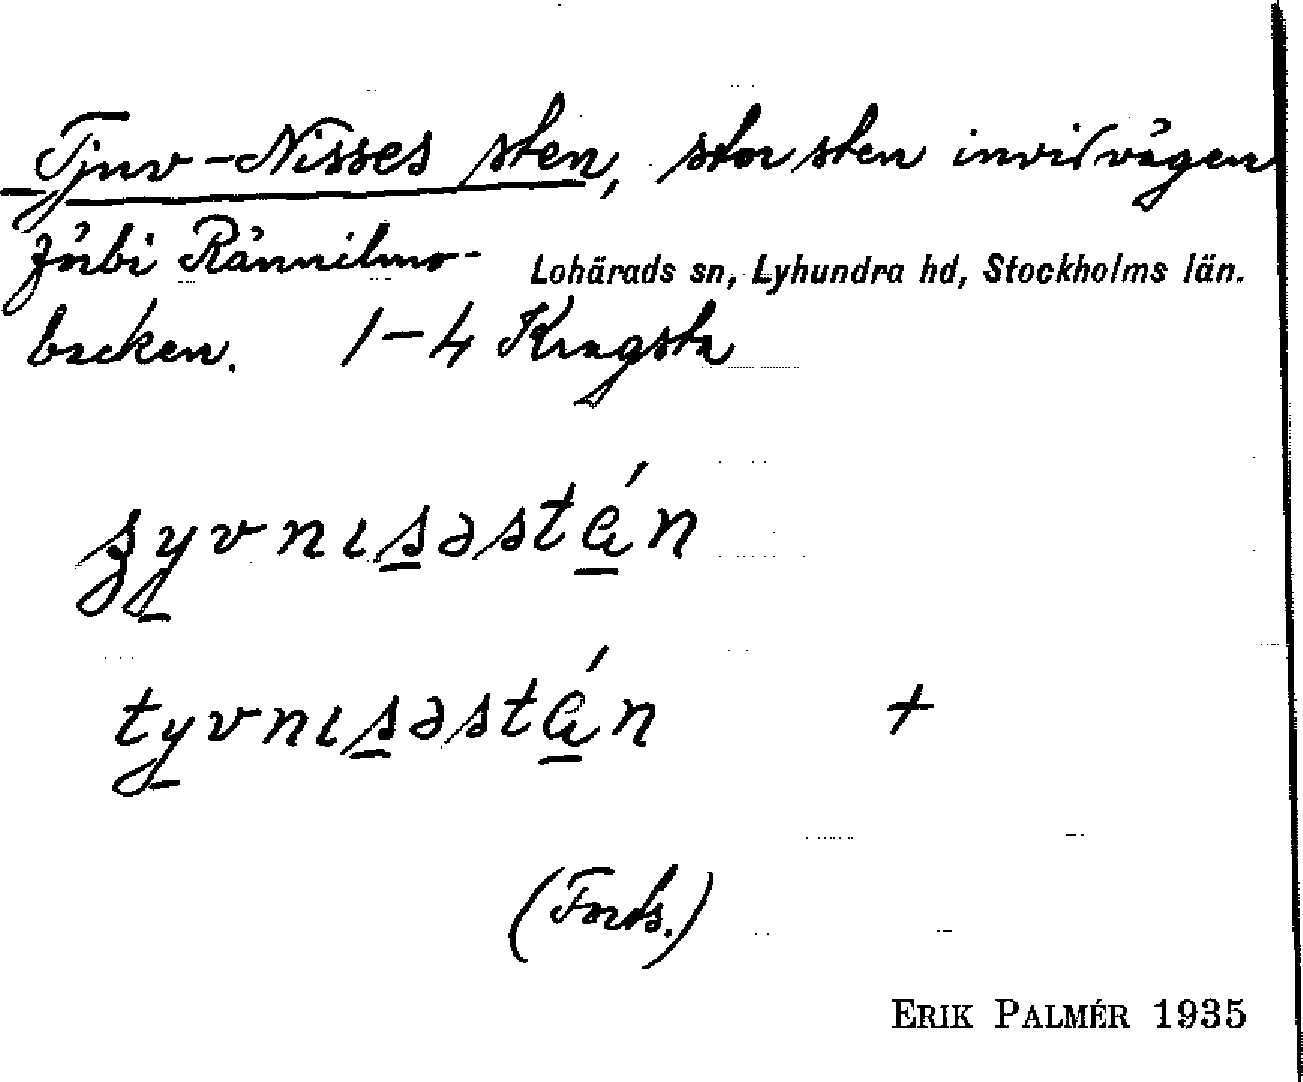 Tjuv-Nisses sten, stor sten invid vägen
förbi Rännilmo-
Lohärads sn, Lyhundra hd, Stockholms län.
backen. 1-4 Kragsta
tyvnɩsəstán +
(Forts.)
ERIK PALMÉR 1935